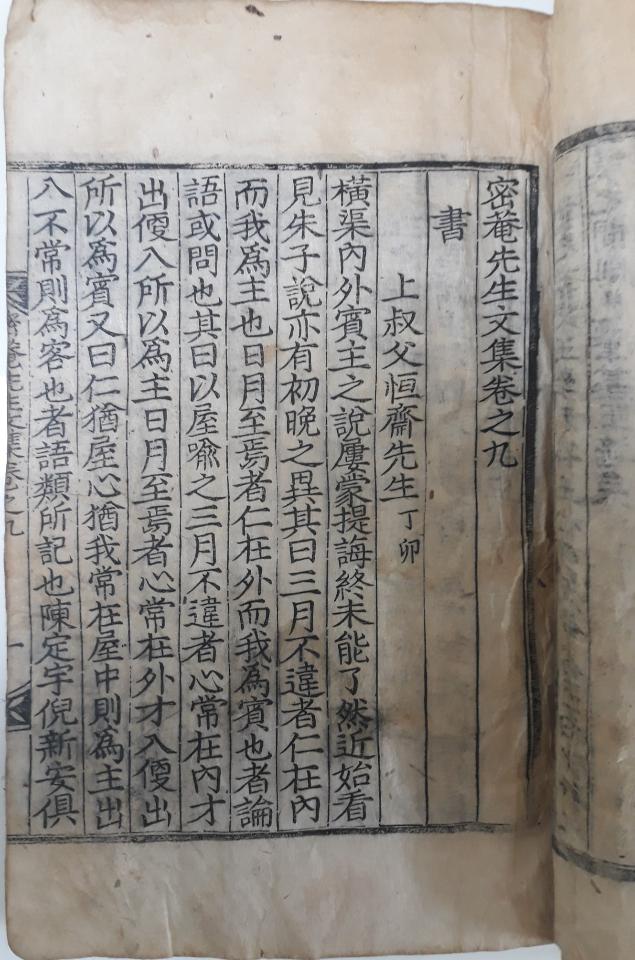 密菴先生文集卷之九
書
上叔父恒齋先生 丁卯
橫渠內外賓主之說屢蒙提誨終未能了然近始看
見朱子說亦有初晩之異其曰三月不違者仁在內
而我爲主也日月至焉者仁在外而我爲賓也者論
語或問也其曰以屋喩之三月不違者心常在內才
出便入所以爲主日月至焉者心常在外才入便出
所以爲賓又曰仁猶屋心猶我常在屋中則爲主出
入不常則爲客也者語類所記也陳定宇倪新安俱
密菴先生文集卷之九
一